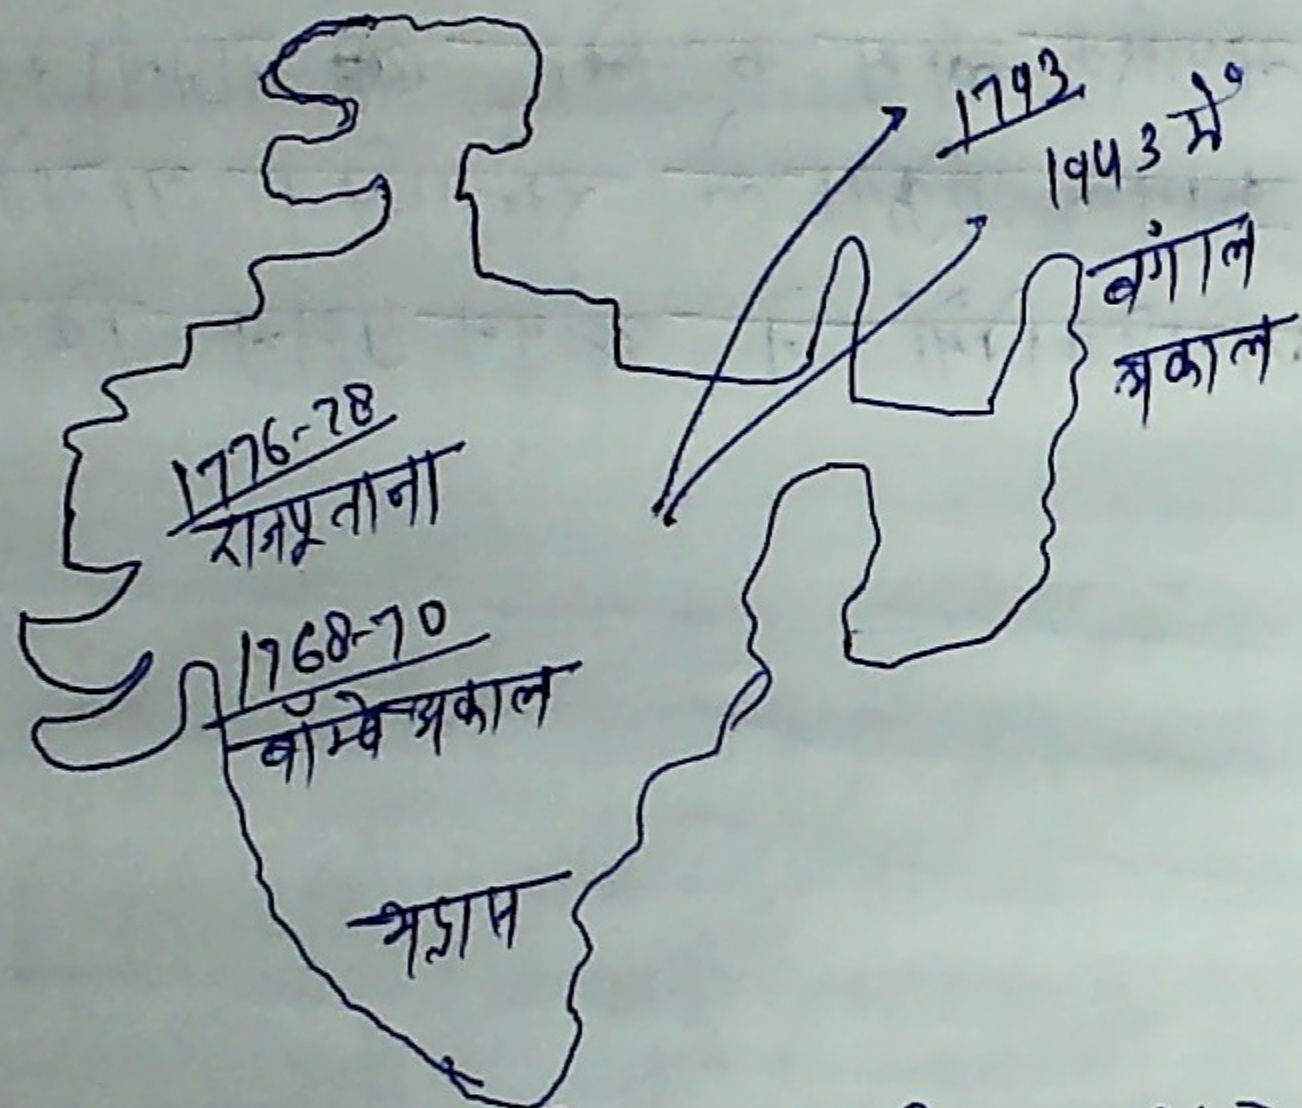 1793
1943 में
बंगाल
अकाल
1776-78
राजपूताना
1768-70
बॉम्बे अकाल
मद्रास